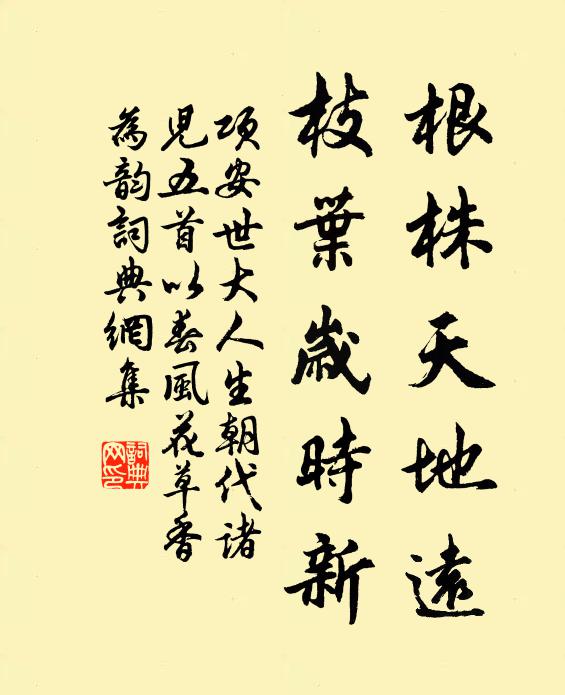 根株天地遠
枝葉歲時新
項安世大人生朝代諸
兒五首以春風花草香
為韵詞典網集
詞典
网印